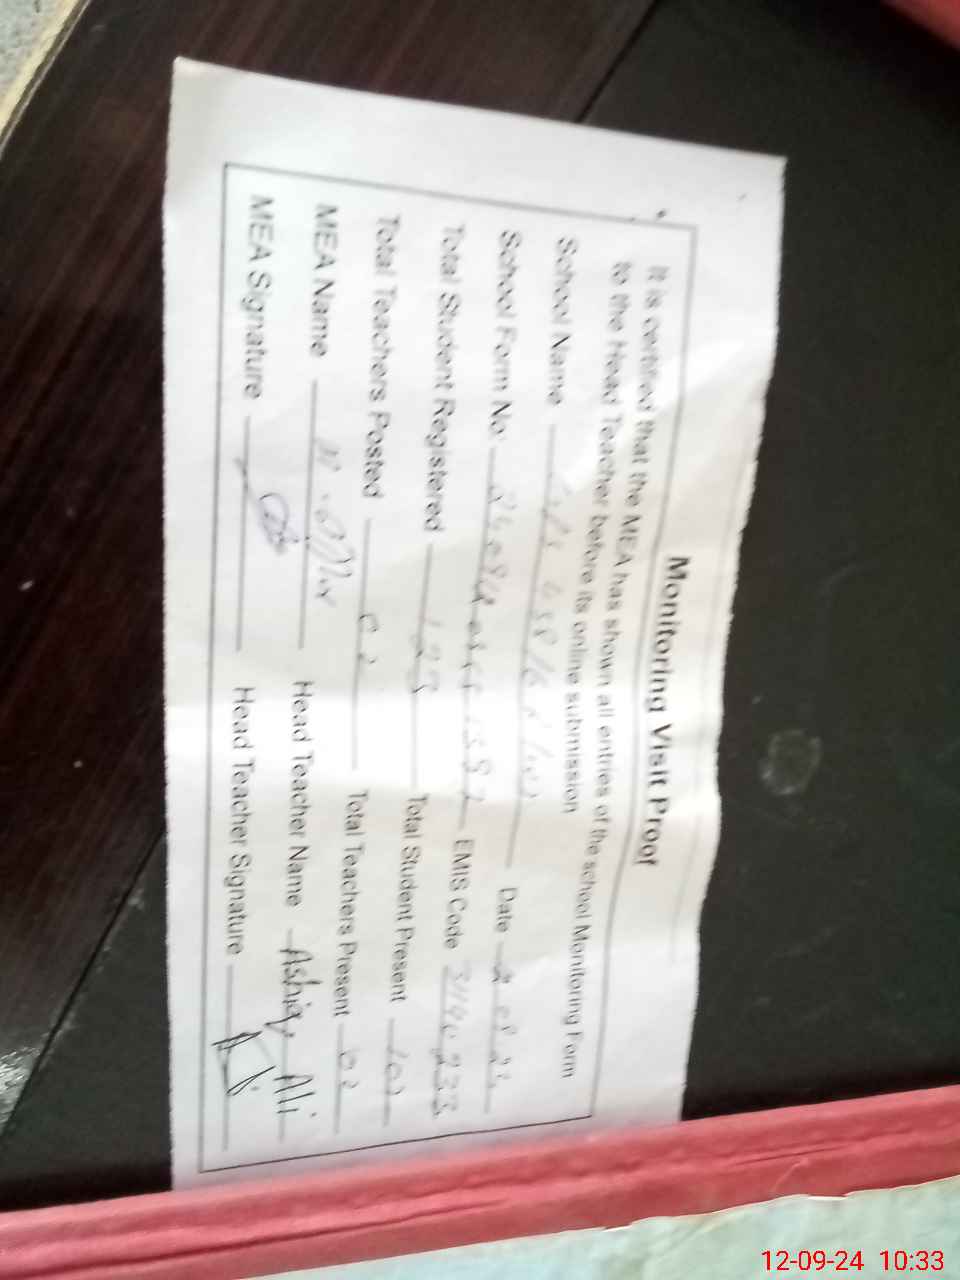 Monitoring Visit Proof
It is certified that the MEA has shown all entries of the school Monitoring Form
to the Head Teacher before its online submission
School Name Date
School Form No. EMIS Code 31140233
Total Student Registered Total Student Present
Total Teachers Posted 02 Total Teachers Present 02
MEA Name Head Teacher Name Ashiq Ali
MEA Signature Head Teacher Signature
12-09-24 10:33